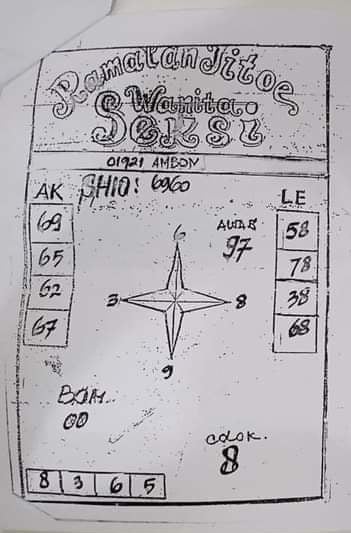 Ramalan Jitoe
Wanita
Seksi
01921 AMBON
AK SHIO: 6960 LE
69 58
65 78
62 38
67 68
6
97
3 8
9
BOM
00
COLOK.
8
8 3 6 5